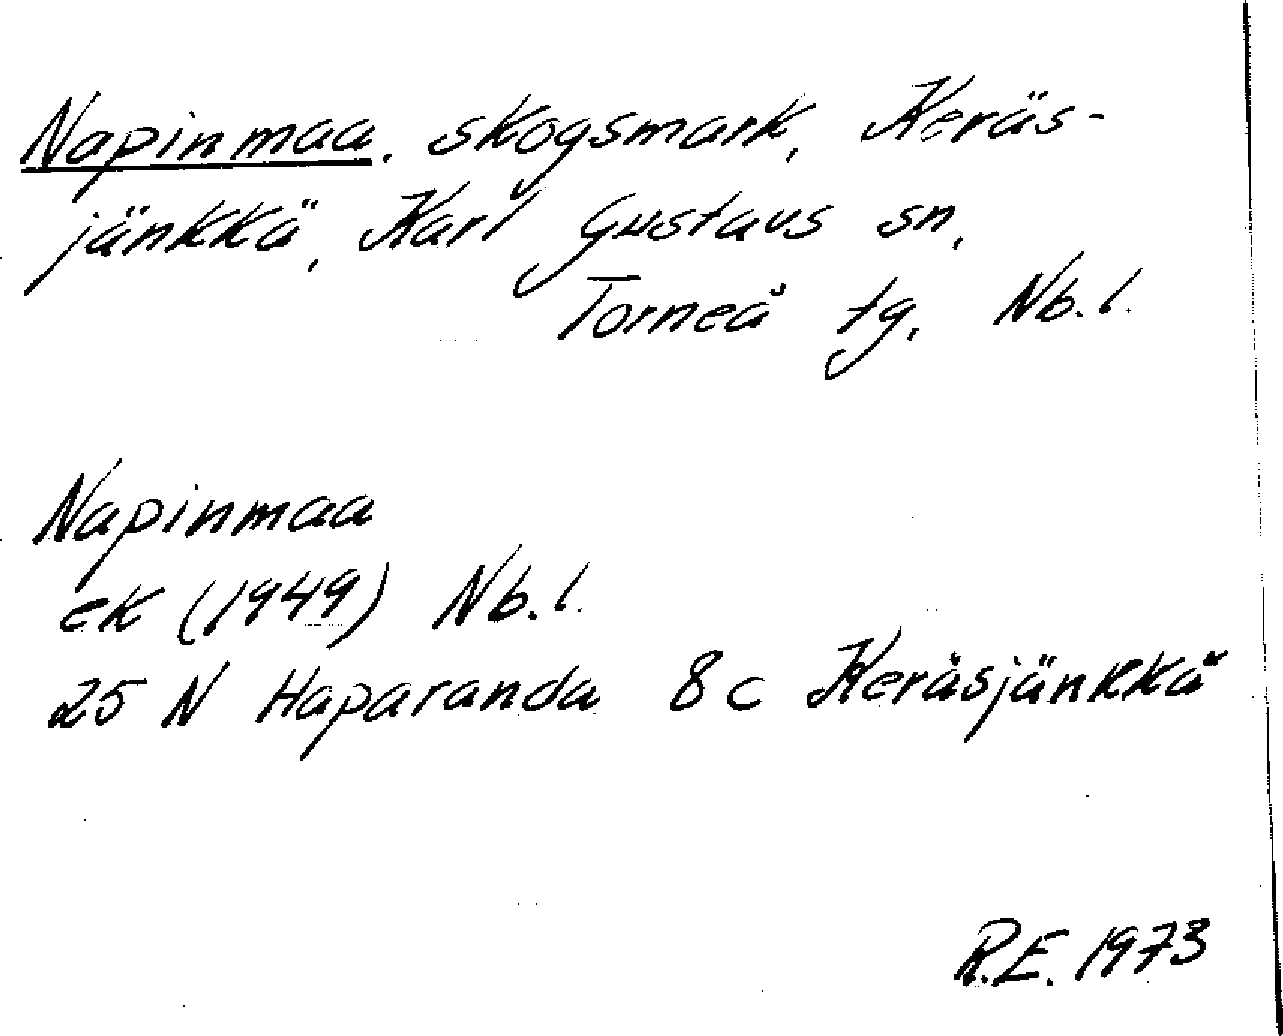 Napinmaa, skogsmark, Keräs-
jänkkä, Karl Gustavs sn,
Torneå tg, Nb.l.
Napinmaa
ek (1949) Nb.l.
25 N Haparanda 8c Keräsjänkkä
R.E. 1973